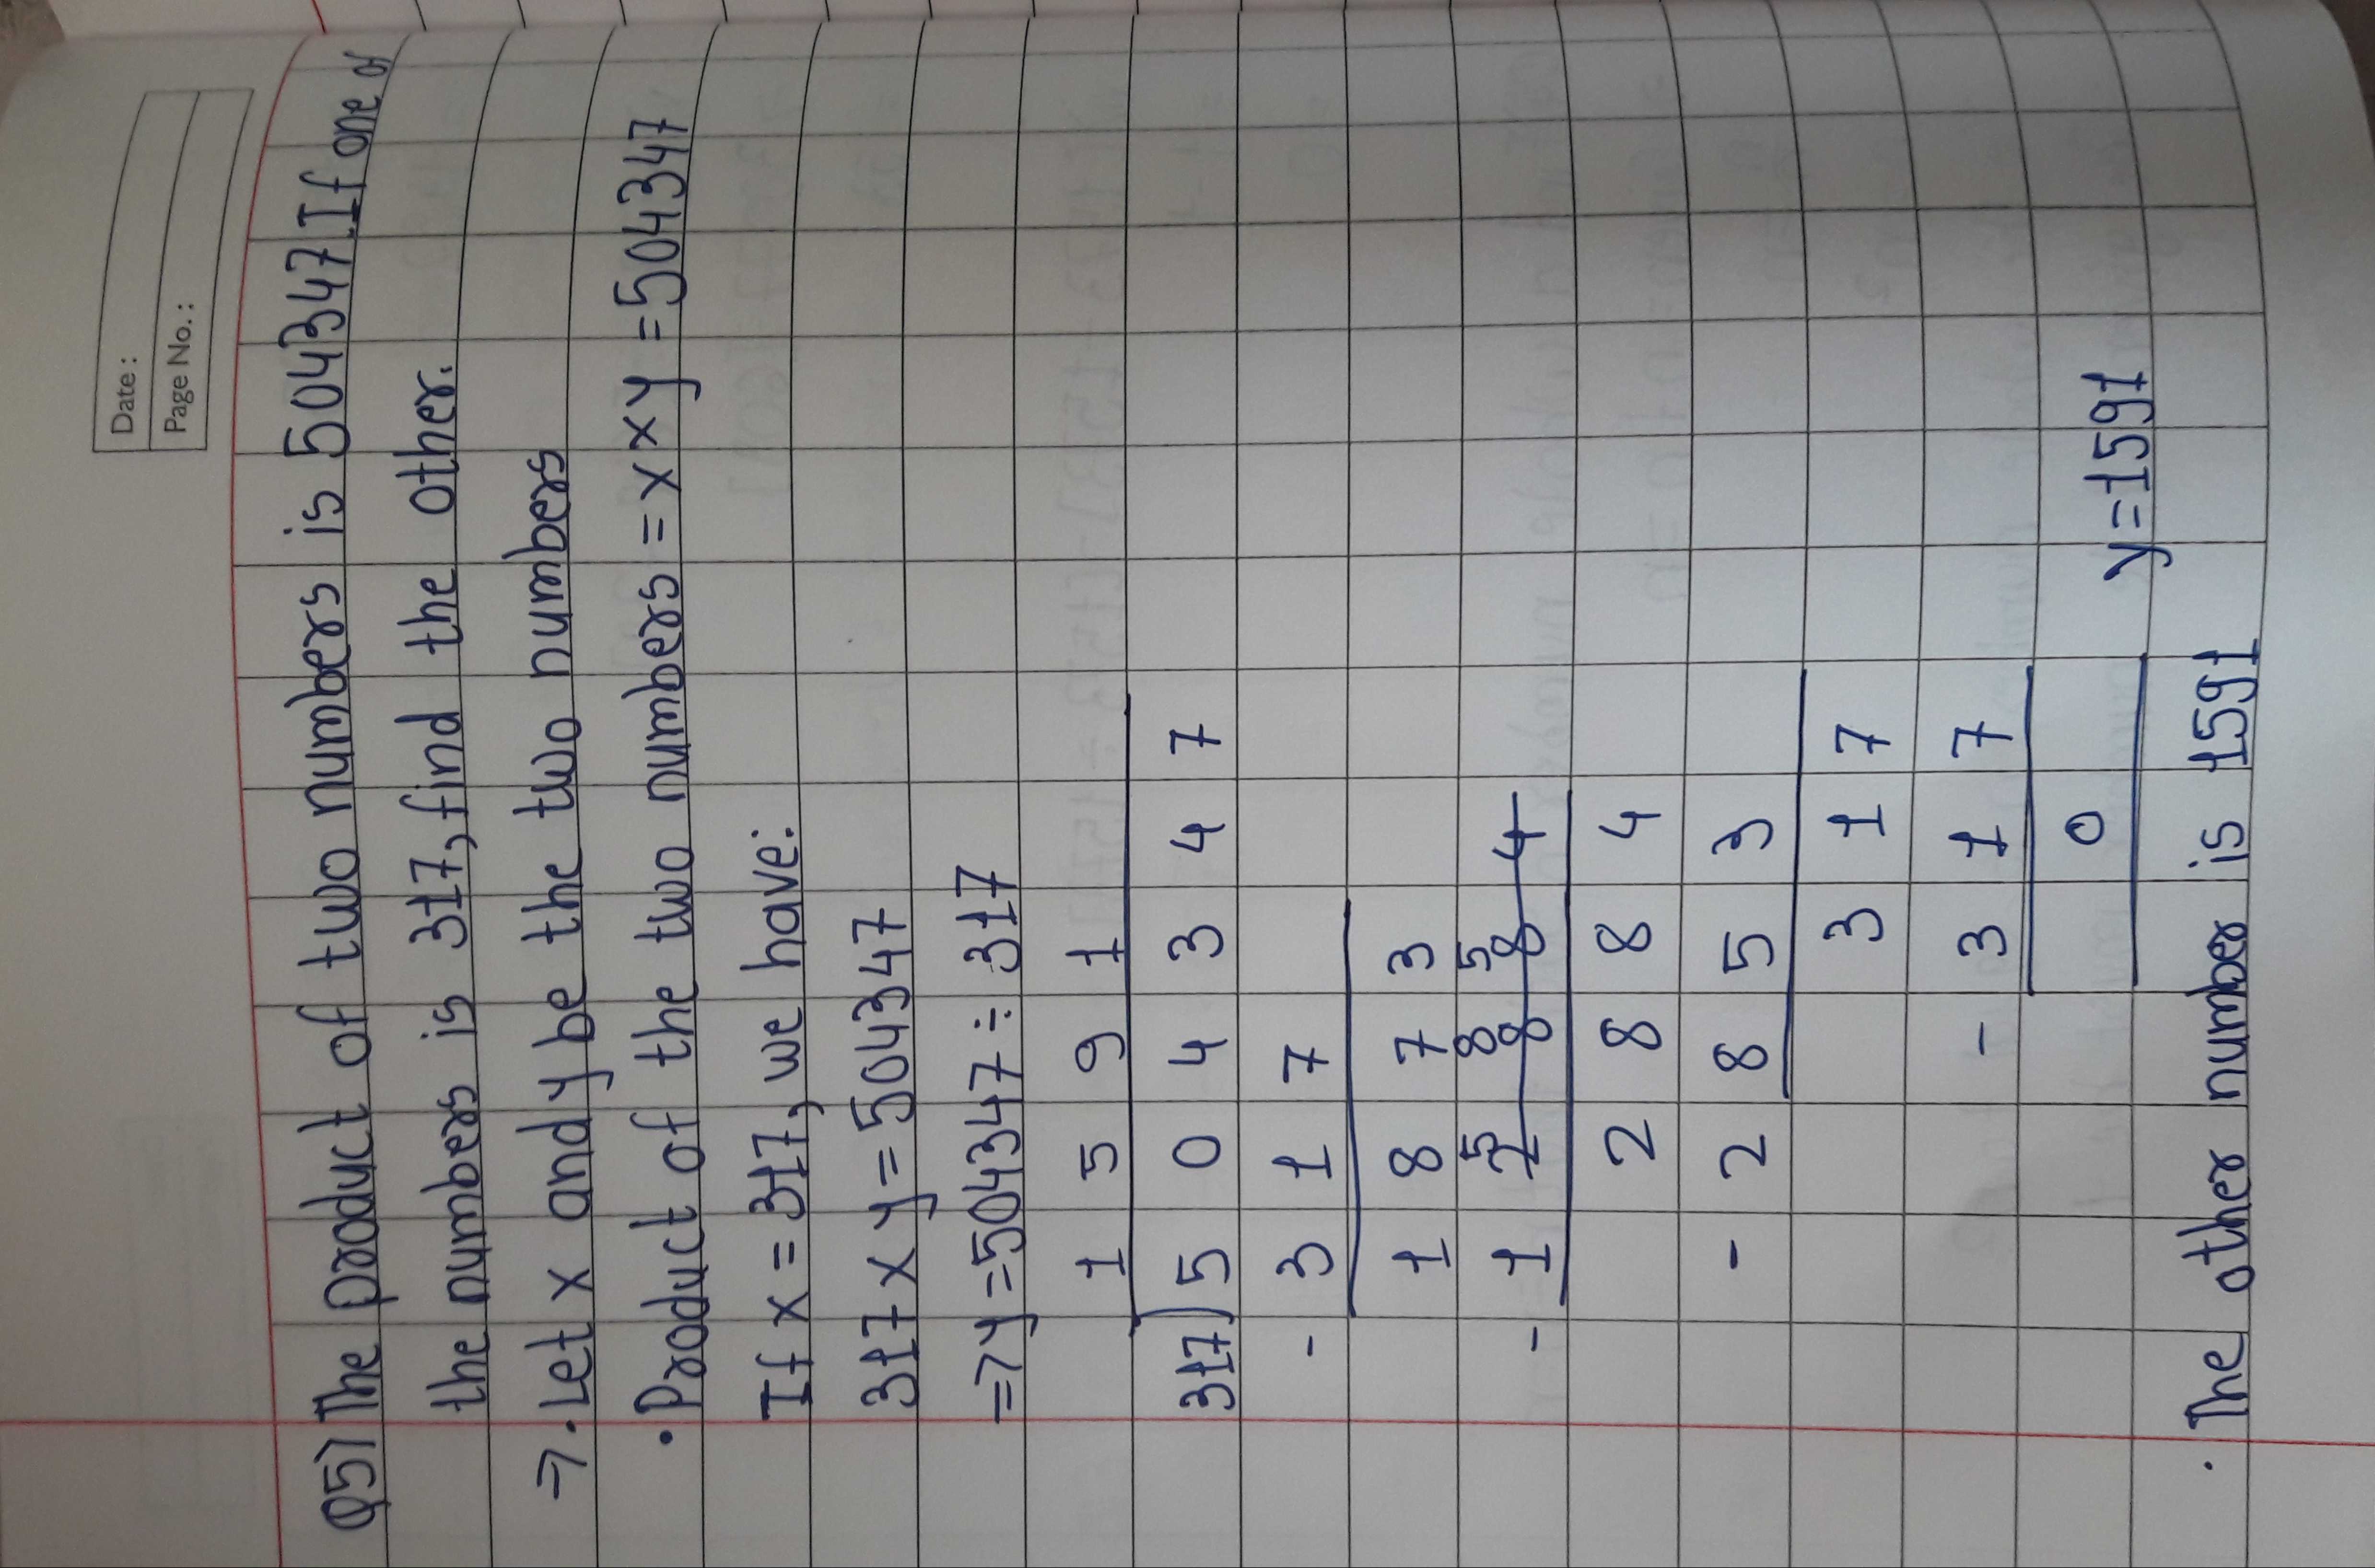 Date :
Page No. :
Q5) The product of two numbers is 504347. If one of
the numbers is 317, find the other.
=> . Let x and y be the two numbers
• Product of the two numbers = x x y = 504347
If x = 317, we have:
317 x y = 504347
=> y = 504347 ÷ 317
1 5 9 1
317) 5 0 4 3 4 7
- 3 1 7
1 8 7 3
5 8 5
- 1 2 8 8 4
2 8 8 4
- 2 8 5 3
3 1 7
- 3 1 7
0
y = 1591
. The other number is 1591